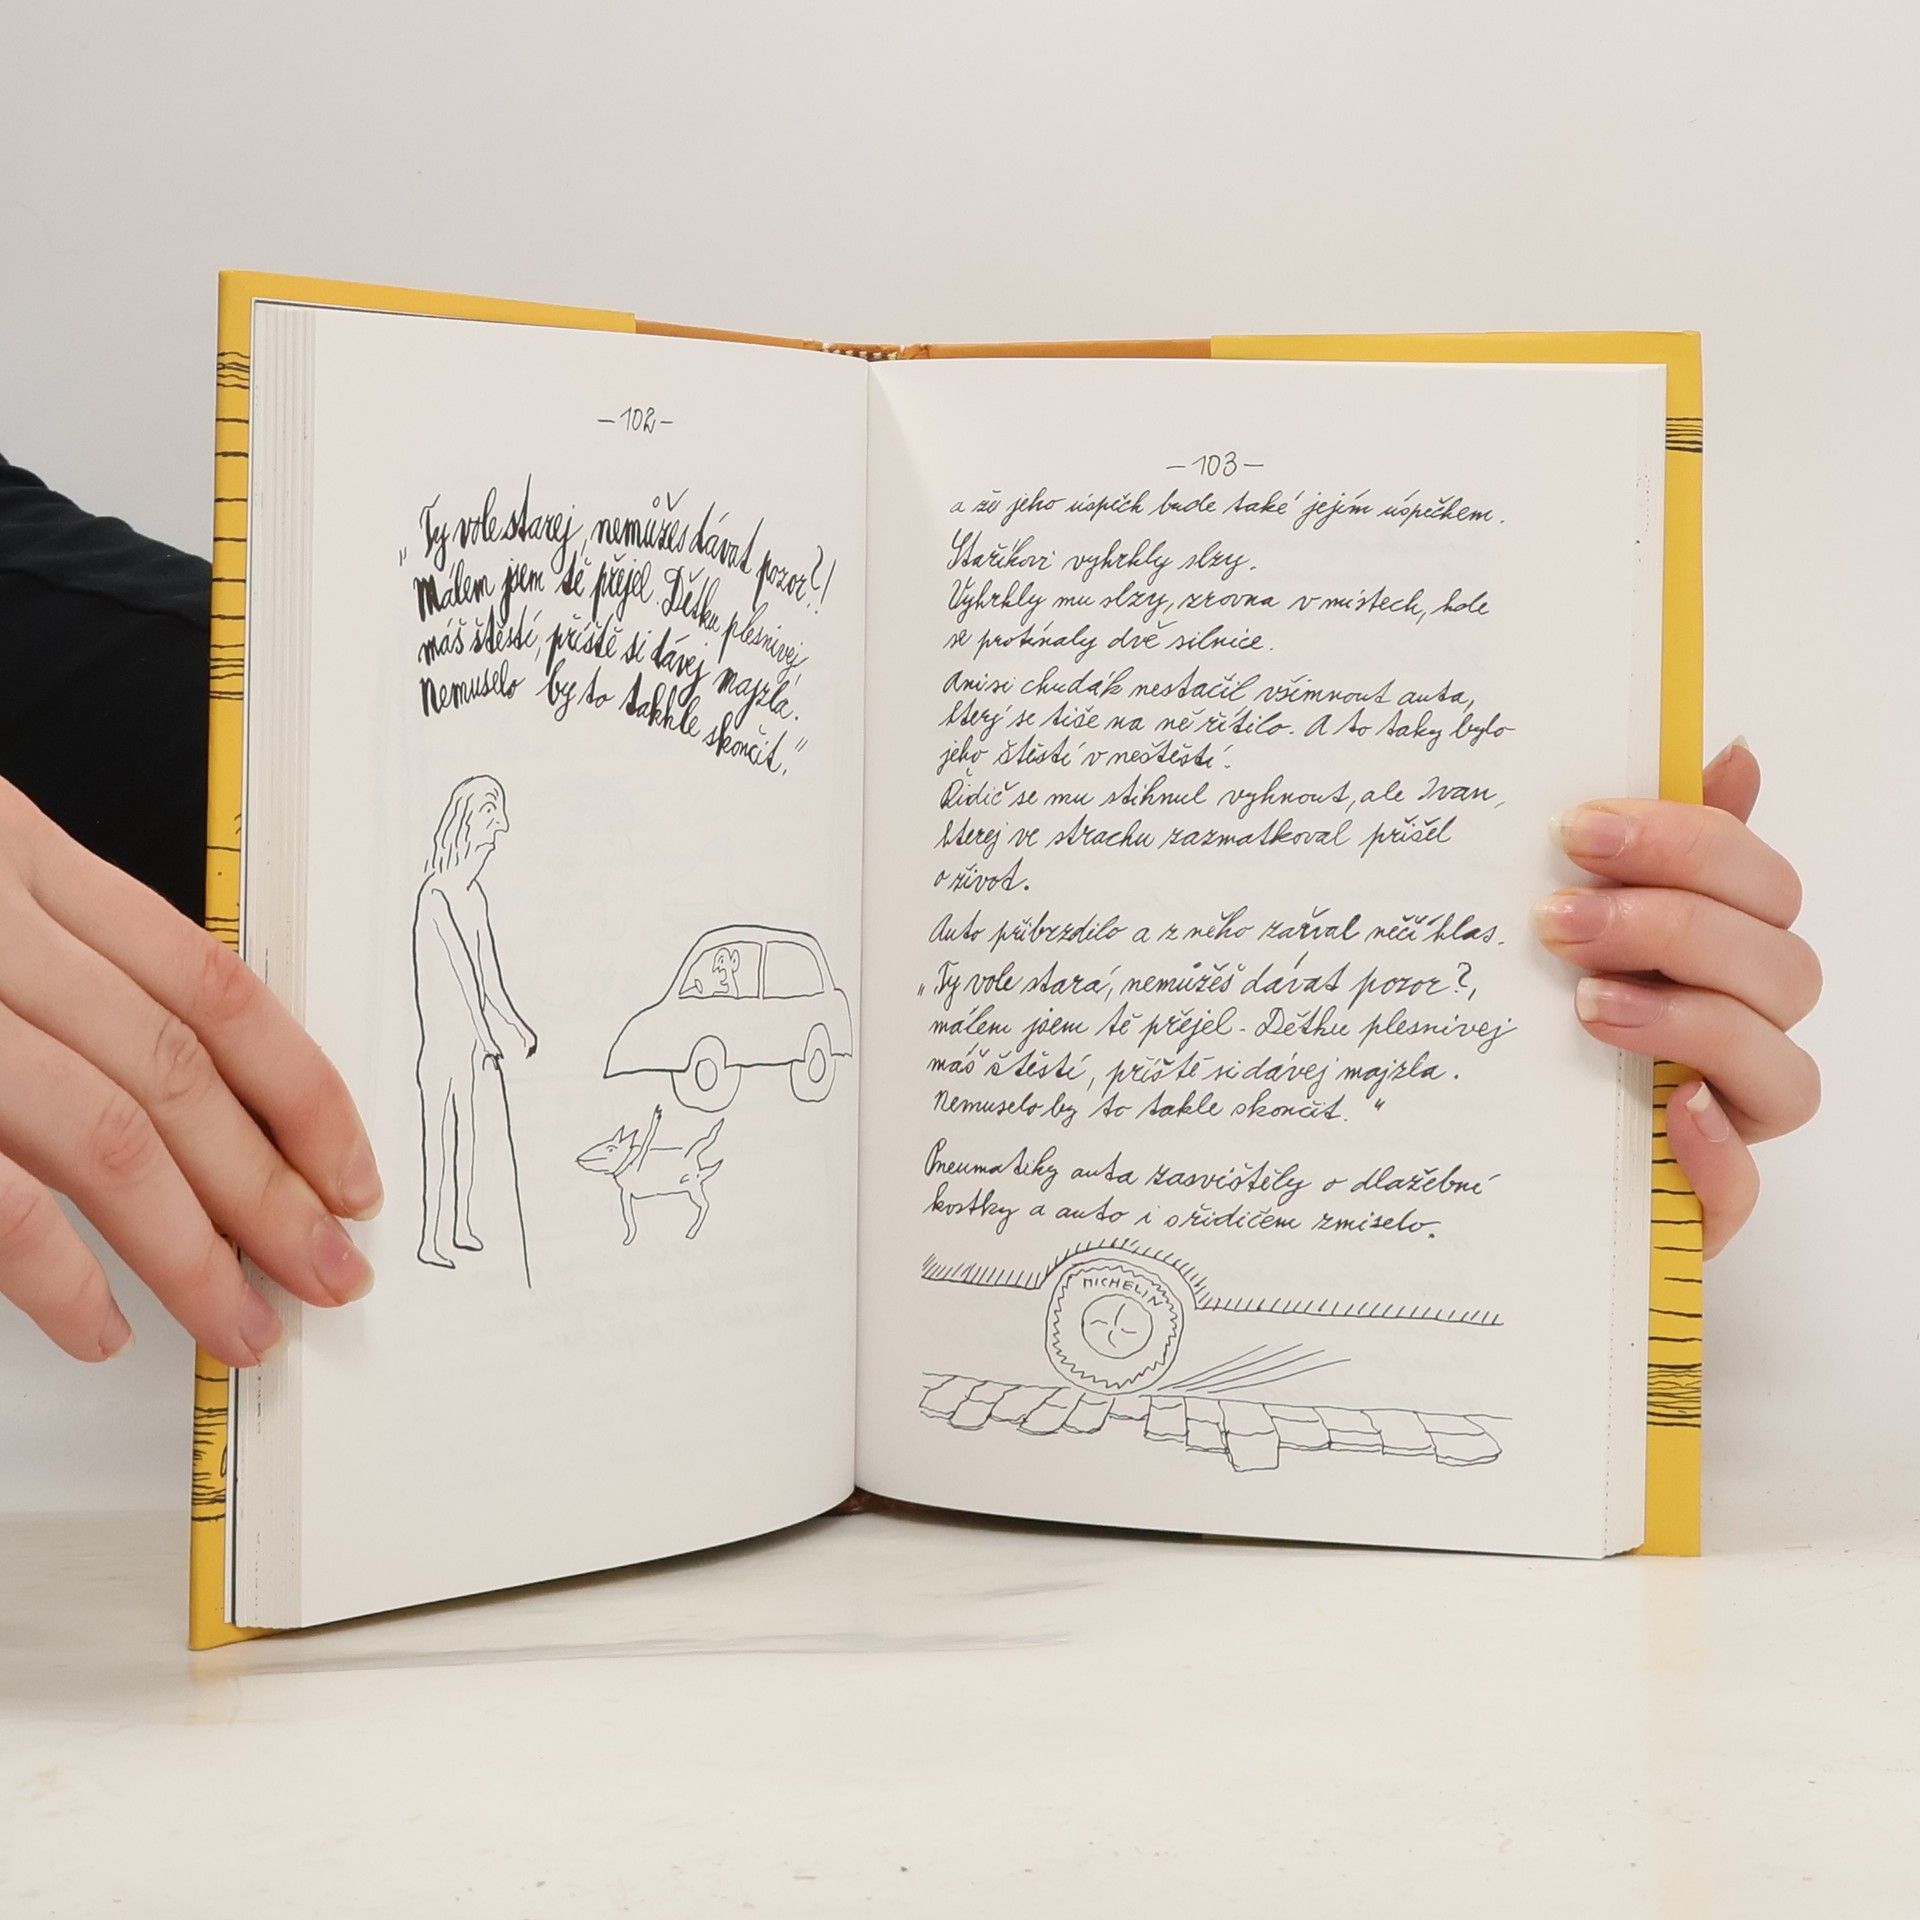 -102-
„Ty vole starej, nemůžeš dávat pozor?!
Málem jsem tě přejel. Dětku plesnivej,
máš štěstí, příště si dávej majzla.
Nemuselo by to takhle skončit."
-103-
a že jeho úspěch bude také jejím úspěchem.
Staříkovi vyhrkly slzy.
Vyhrkly mu slzy, zrovna v místech, kde
se protínaly dvě silnice.
Ani si chudák nestačil všimnout auta,
který se tiše na ně řítilo. A to taky bylo
jeho štěstí v neštěstí.
Řidič se mu stihnul vyhnout, ale Ivan,
kterej ve strachu zazmatkoval přišel
o život.
Auto přibrzdilo a z něho zařval něčí hlas.
„Ty vole stará, nemůžeš dávat pozor?,
málem jsem tě přejel - Dětku plesnivej
máš štěstí, příště si dávej majzla.
Nemuselo by to takle skončit."
Pneumatiky auta zasvištěly o dlažební
kostky a auto i s řidičem zmiselo.
MICHELIN